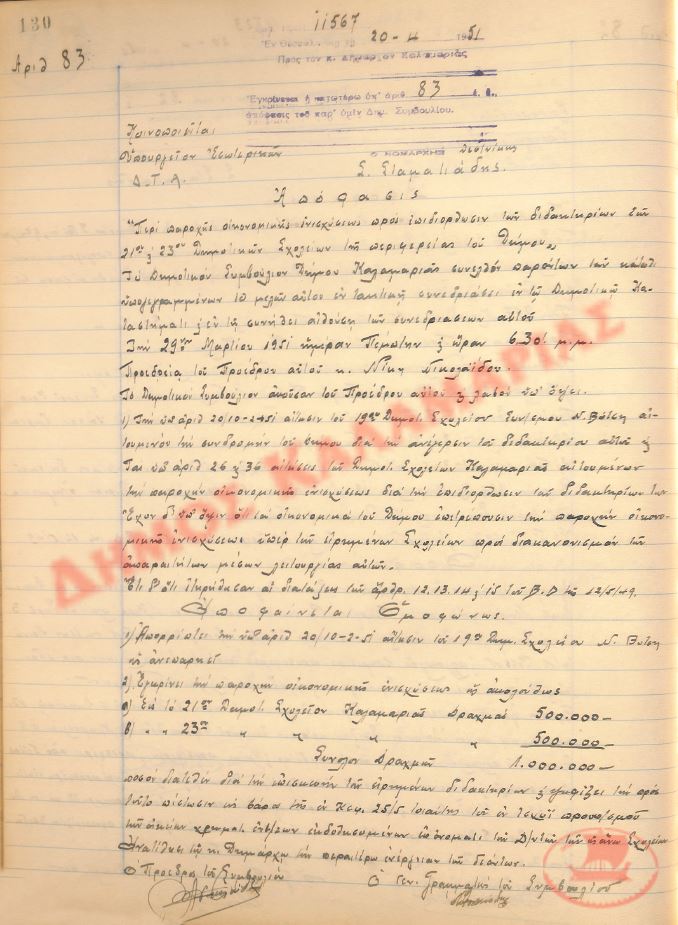 130
11567
Αριθ 83
Ἐν Θεσ/νίκῃ τῇ 20-4 1951
Πρὸς τὸν κ. Δήμαρχον Καλαμαριᾶς
Ἐγκρίνεται ἡ κατωτέρω ὑπ' ἀριθ 83 ἐ. ἔ.
ἀπόφασις τοῦ παρ' ὑμῖν Δημ. Συμβουλίου.
Κοινοποιεῖται
Ὑπουργεῖον Ἐσωτερικῶν
Δ.Τ.Α.
Ο ΝΟΜΑΡΧΗΣ Θεσ/νίκης
Σ. Σταματιάδης.
Απόφασις
"Περί παροχῆς οικονομικῆς ἐνισχύσεως προς επιδιόρθωσιν των διδακτηρίων των
21ου & 23ου Δημοτικών Σχολείων της περιφερείας του Δήμου"
Το Δημοτικόν Συμβούλιον Δήμου Καλαμαριάς συνελθόν παρόντων των κάτωθι
υπογεγραμμένων 10 μελών αυτού εν τακτική συνεδριάσει εν τω Δημοτικώ Κα-
ταστήματι & εν τη συνήθει αιθούση των συνεδριάσεων αυτού
Την 29ην Μαρτίου 1951 ημέραν Πέμπτην & ώραν 6.30' μ.μ.
Προεδρεία του Προέδρου αυτού κ. Νίκη Νικολαΐδου.
Το Δημοτικόν Συμβούλιον ακούσαν του Προέδρου αυτού & λαβόν υπ' όψει.
1) Την υπ' αριθ 20/10-2-51 αίτησιν του 19ου Δημοτ. Σχολείου Συν/σμού Ν. Βότση αι-
τουμένου την συνδρομήν του Δήμου δια την ανέγερσιν του διδακτηρίου αυτού &
Τας υπ' αριθ 26 & 36 αιτήσεις των Δημοτ. Σχολείων Καλαμαριάς αιτουμένων
την παροχήν οικονομικής ενισχύσεως δια την επιδιόρθωσιν των διδακτηρίων των
Έχον δ' υπ' όψιν ότι τα οικονομικά του Δήμου επιτρέπουσιν την παροχήν οικονο-
μικής ενισχύσεως υπέρ των ειρημένων Σχολείων προς διακανονισμόν των
απαραιτήτων μέσων λειτουργίας αυτών.
Έτι δ' ότι ετηρήθησαν αι διατάξεις των άρθρ. 12.13.14 & 15 του Β.Δ της 12/5/49.
Αποφαίνεται Ομοφώνως.
1) Απορρίπτει την υπ' αριθ 20/10-2-51 αίτησιν του 19ου Δημ. Σχολείου Ν. Βότση
ως ανεπαρκή
2) Εγκρίνει την παροχήν οικονομικής ενισχύσεως ως ακολούθως
α) Εις το 21ον Δημοτ. Σχολείον Καλαμαριάς Δραχμάς 500.000-
β) " " 23ον " " " " 500.000-
Σύνολον Δραχμών 1.000.000-
ποσόν διατεθέν διά την επισκευήν των ειρημένων διδακτηρίων & ψηφίζει την προς
τούτο πίστωσιν εις βάρος του εν Κεφ. 25/5 του εν ισχύι προϋπ/σμού
των οικείων χρηματ. ενταλμάτων εκδοθησομένων επ' ονόματι των Δ/ντών των ως άνω Σχολείων
Ανατίθησι τω κ. Δημάρχω την περαιτέρω ενέργειαν των δεόντων.
Ο Πρόεδρος του Συμβουλίου
Ο Γεν. Γραμματεύς του Συμβουλίου
ΔΗΜΟΣ ΚΑΛΑΜΑΡΙΑΣ